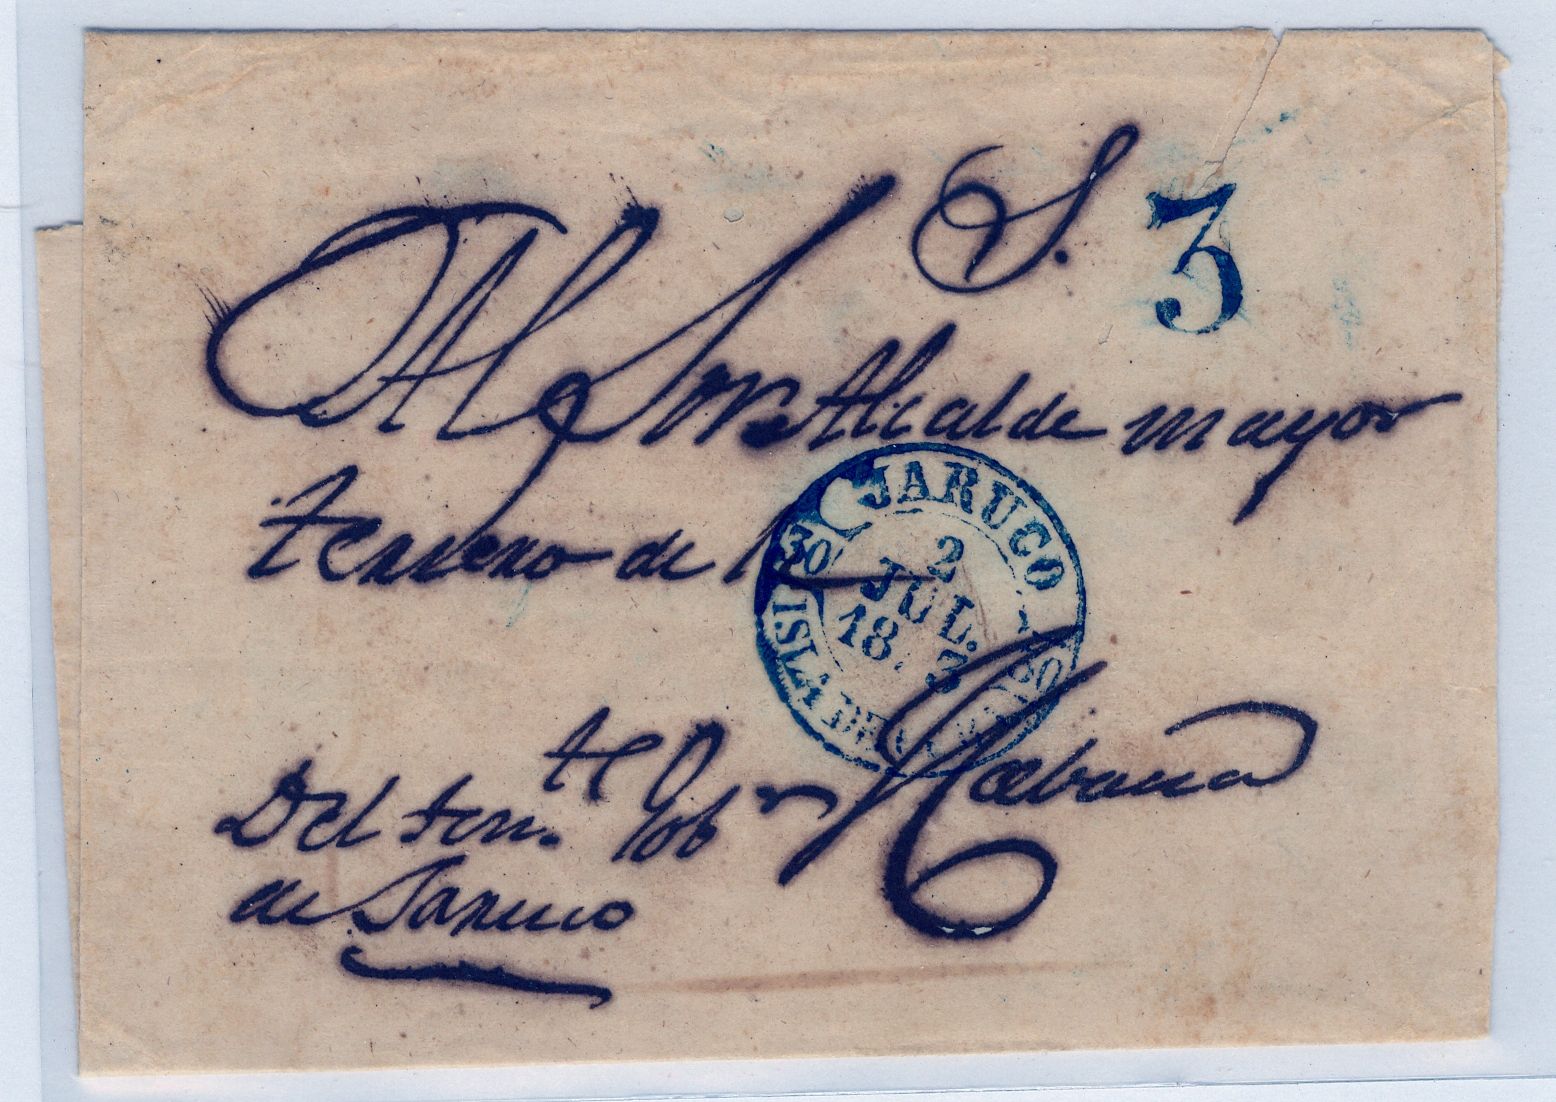 S. 3
Al Sor Alcalde mayor
tercero de la
Habana
Del ten.te Gobor
de Jaruco
JARUCO
2
JUL.
18
ISLA DE CUBA